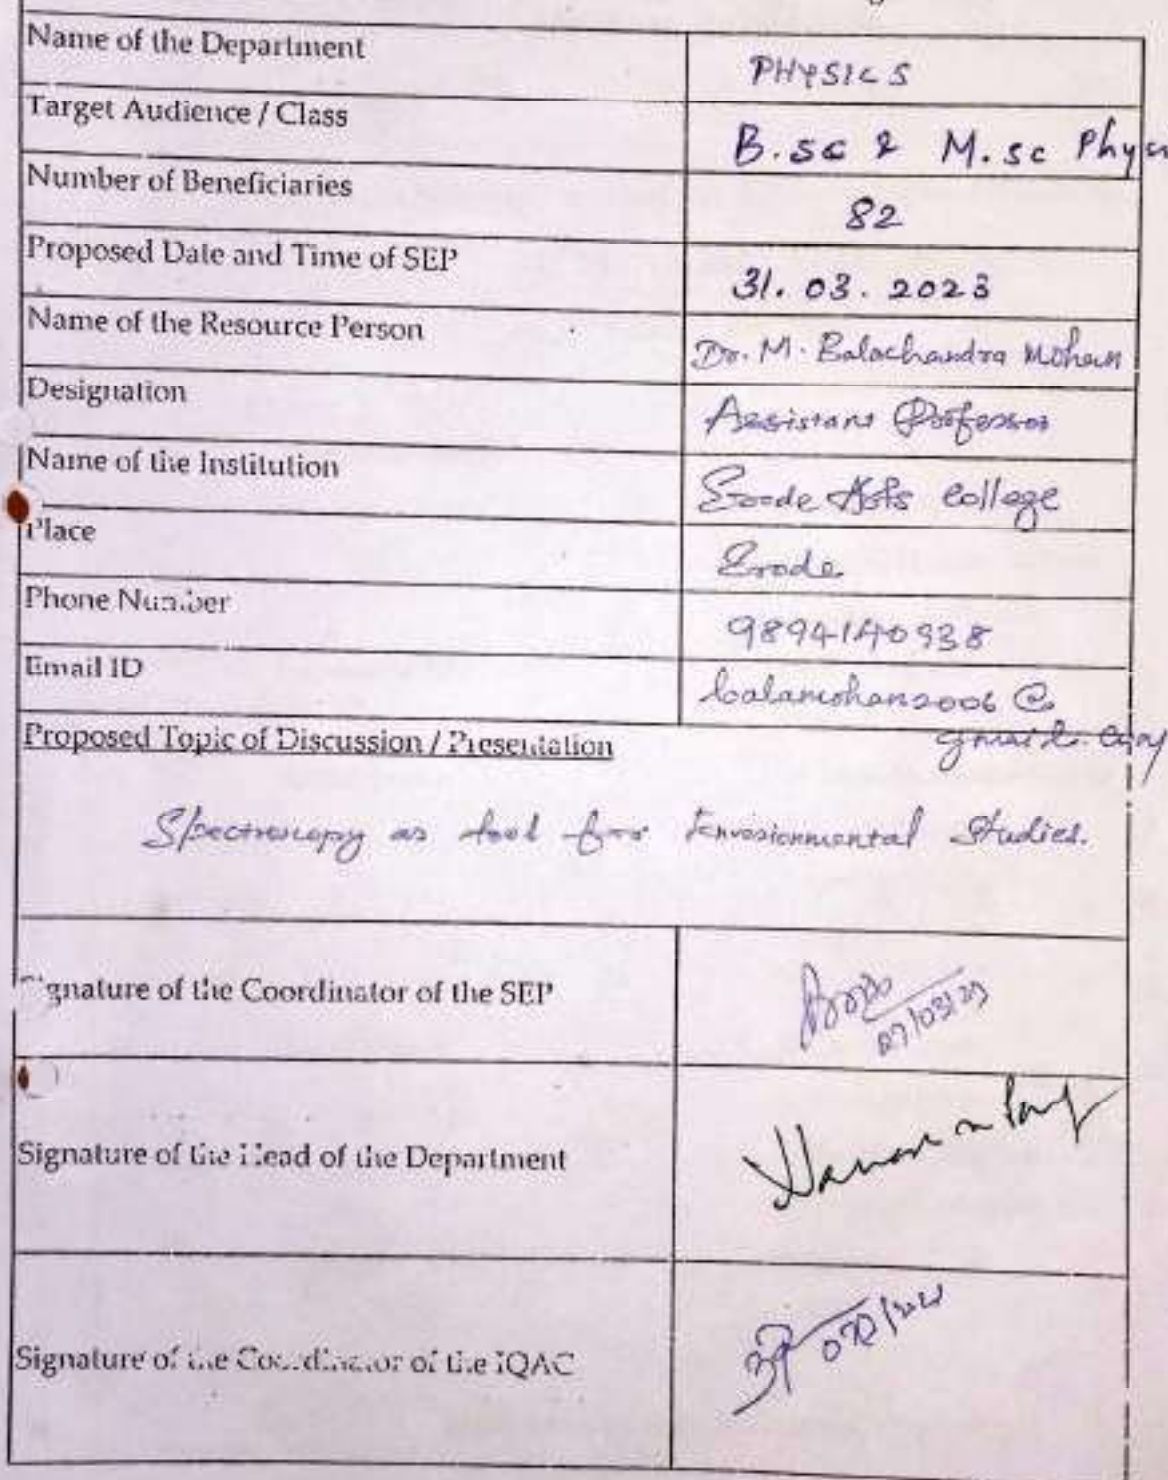 Name of the Department PHYSICS
Target Audience / Class B.sc & M.sc Phy
Number of Beneficiaries 82
Proposed Date and Time of SEP 31. 03. 2023
Name of the Resource Person Dr. M. Balachandra Mohan
Designation Assistant Professor
Name of the Institution Erode Arts College
Place Erode
Phone Number 9894140938
Email ID balamohan2006 @
gmail. com
Proposed Topic of Discussion / Presentation
Spectroscopy as tool for Environmental Studies.
Signature of the Coordinator of the SEP
07/03/23
Signature of the Head of the Department
Signature of the Coordinator of the IQAC